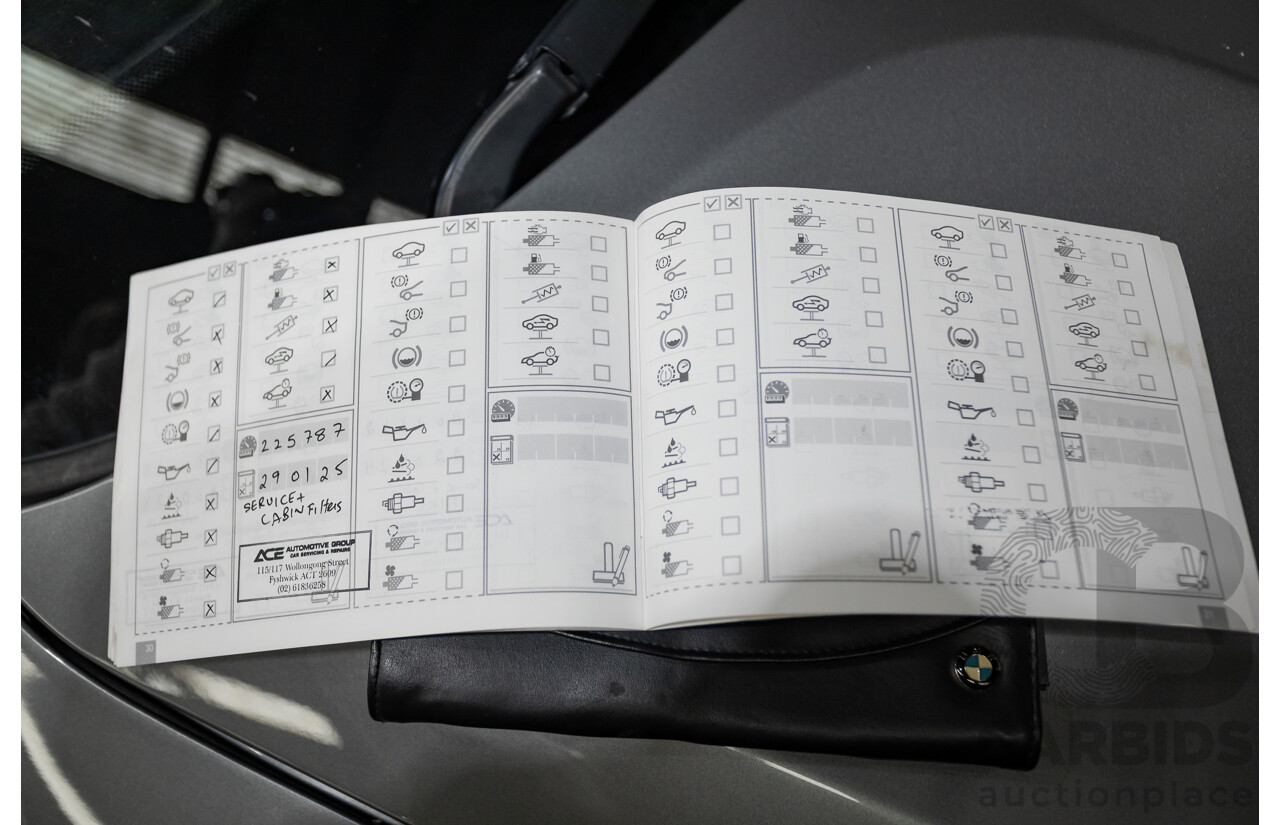 225787
290125
SERVICE+
CABIN Filters
ACE AUTOMOTIVE GROUP
CAR SERVICING & REPAIRS
115/117 Wollongong Street
Fyshwick ACT 2609
(02) 61836258
30
31
ARBIDS
auctionplace